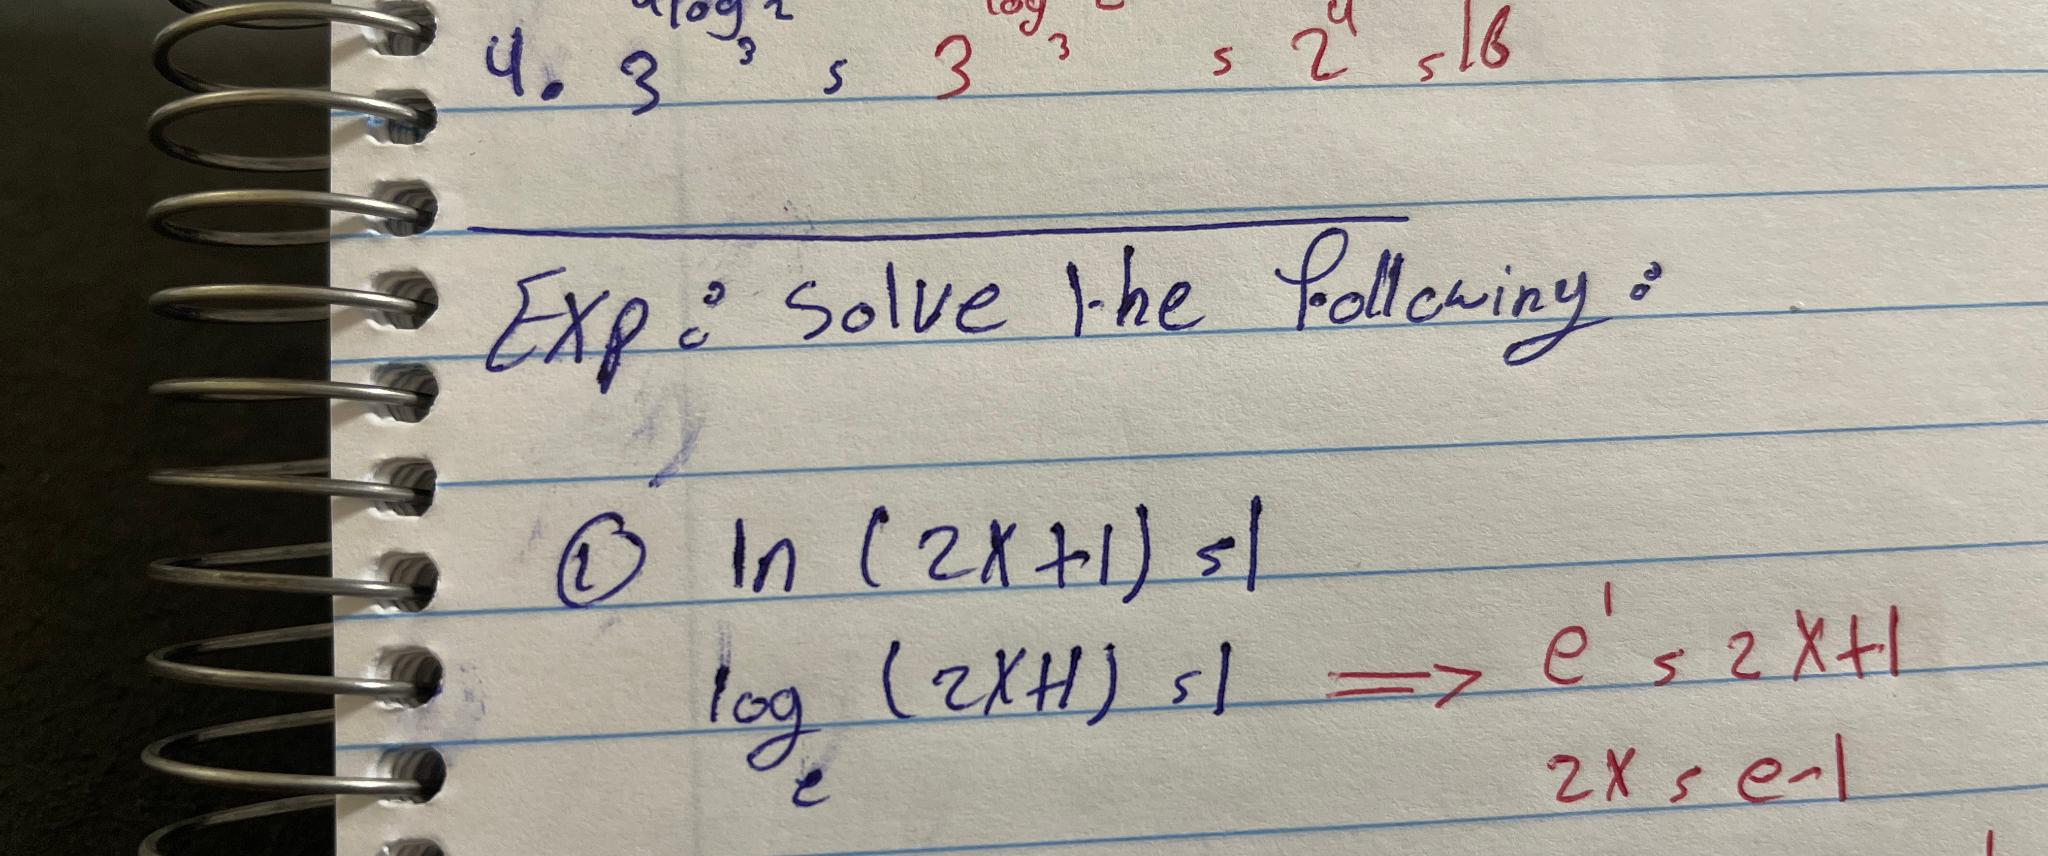 4. 3^4log_3 2 = 3^log_3 = 2^4 = 16
Exp: Solve the following:
① ln (2x+1) = 1
log_e (2x+1) = 1 => e^1 = 2x+1
2x = e-1